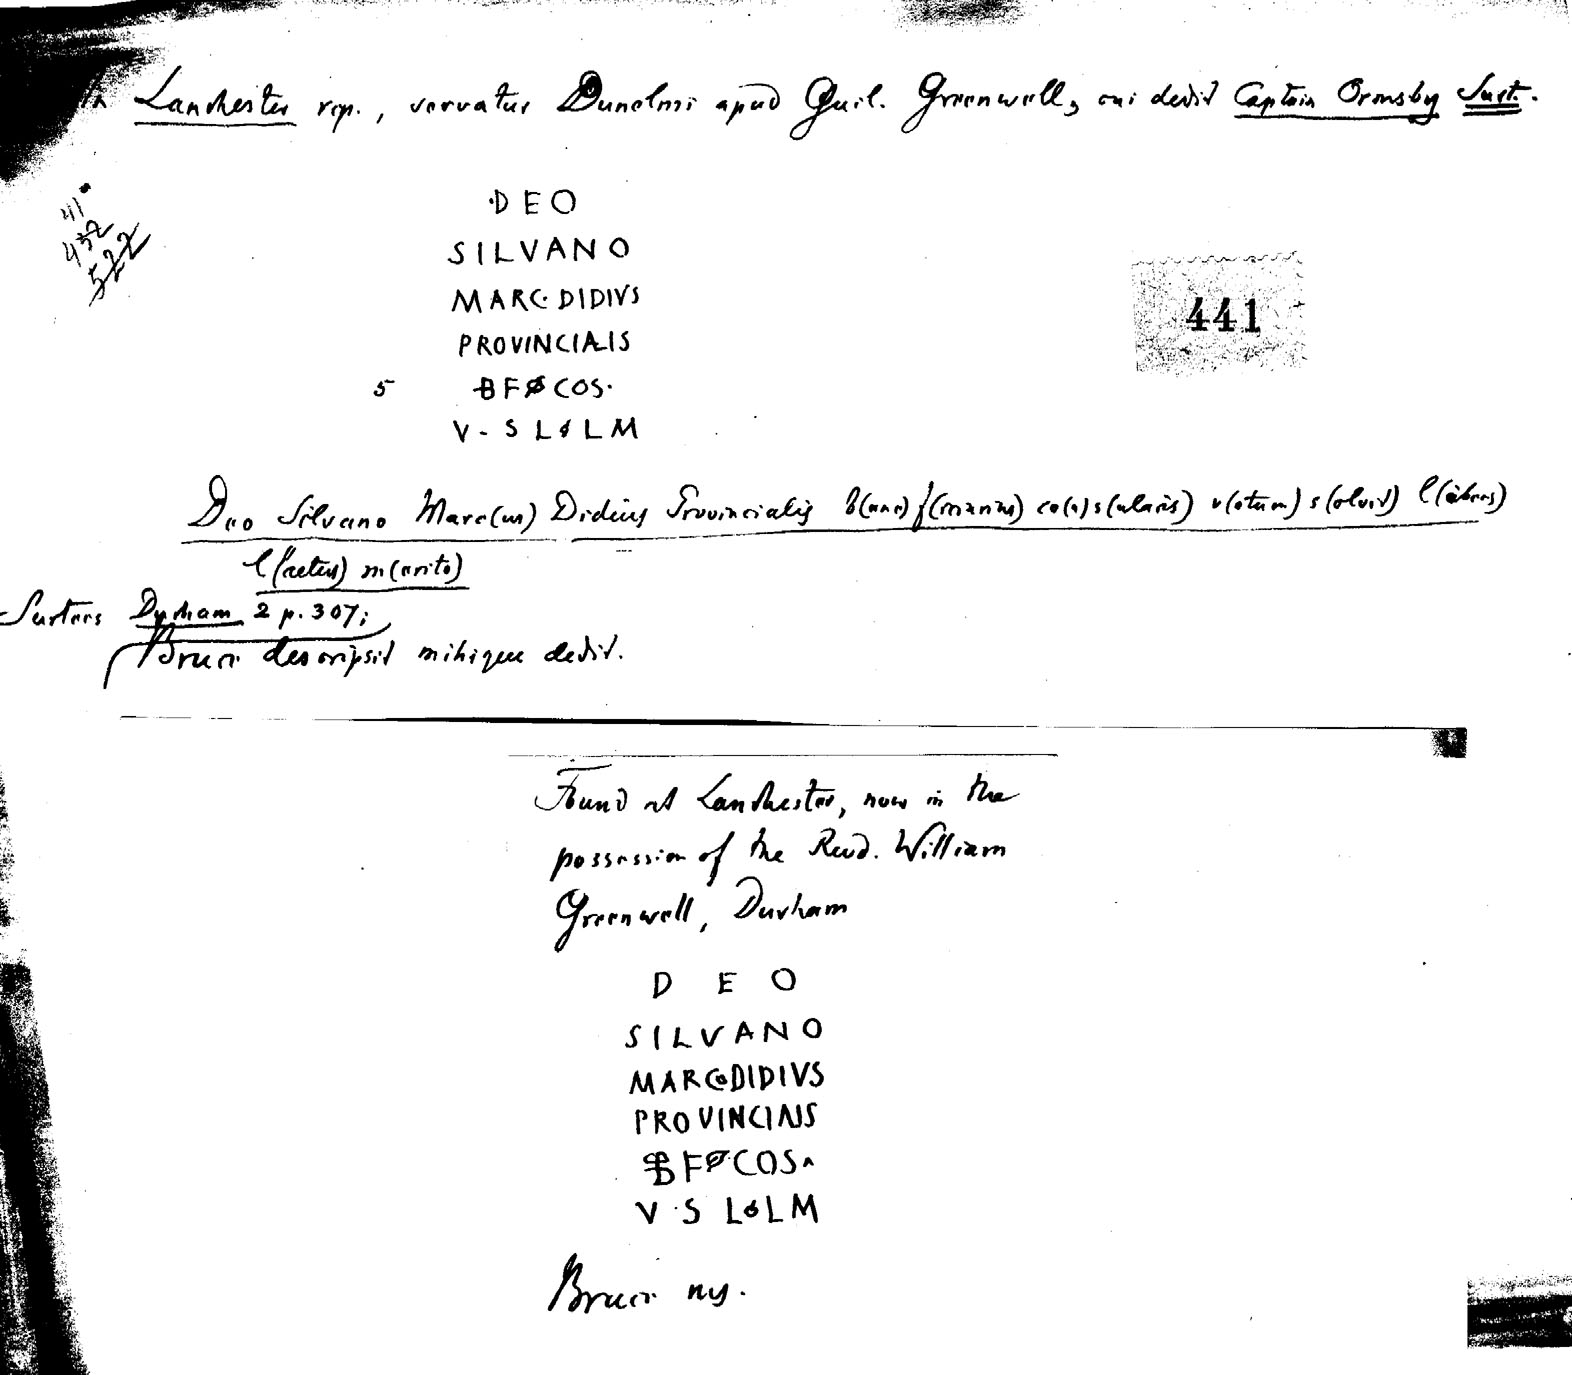 Lanchester rep., servatur Dunelmi apud Guil. Greenwell, cui dedit Captain Ormsby Surt.
41
432
522
DEO
SILVANO
MARC·DIDIVS
PROVINCIALIS
441
5 BF COS·
V·S L L M
Deo Silvano Marc(us) Didius Provincialis b(ene)f(iciarius) co(n)s(ularis) v(otum) s(olvit) l(ibens)
l(aetus) m(erito)
Surtees Durham 2 p. 307;
Bruce descripsit mihique dedit.
Found at Lanchester, now in the
possession of the Revd. William
Greenwell, Durham
D E O
SILVANO
MARC DIDIVS
PROVINCIALIS
BF COS
V·S L L M
Bruce